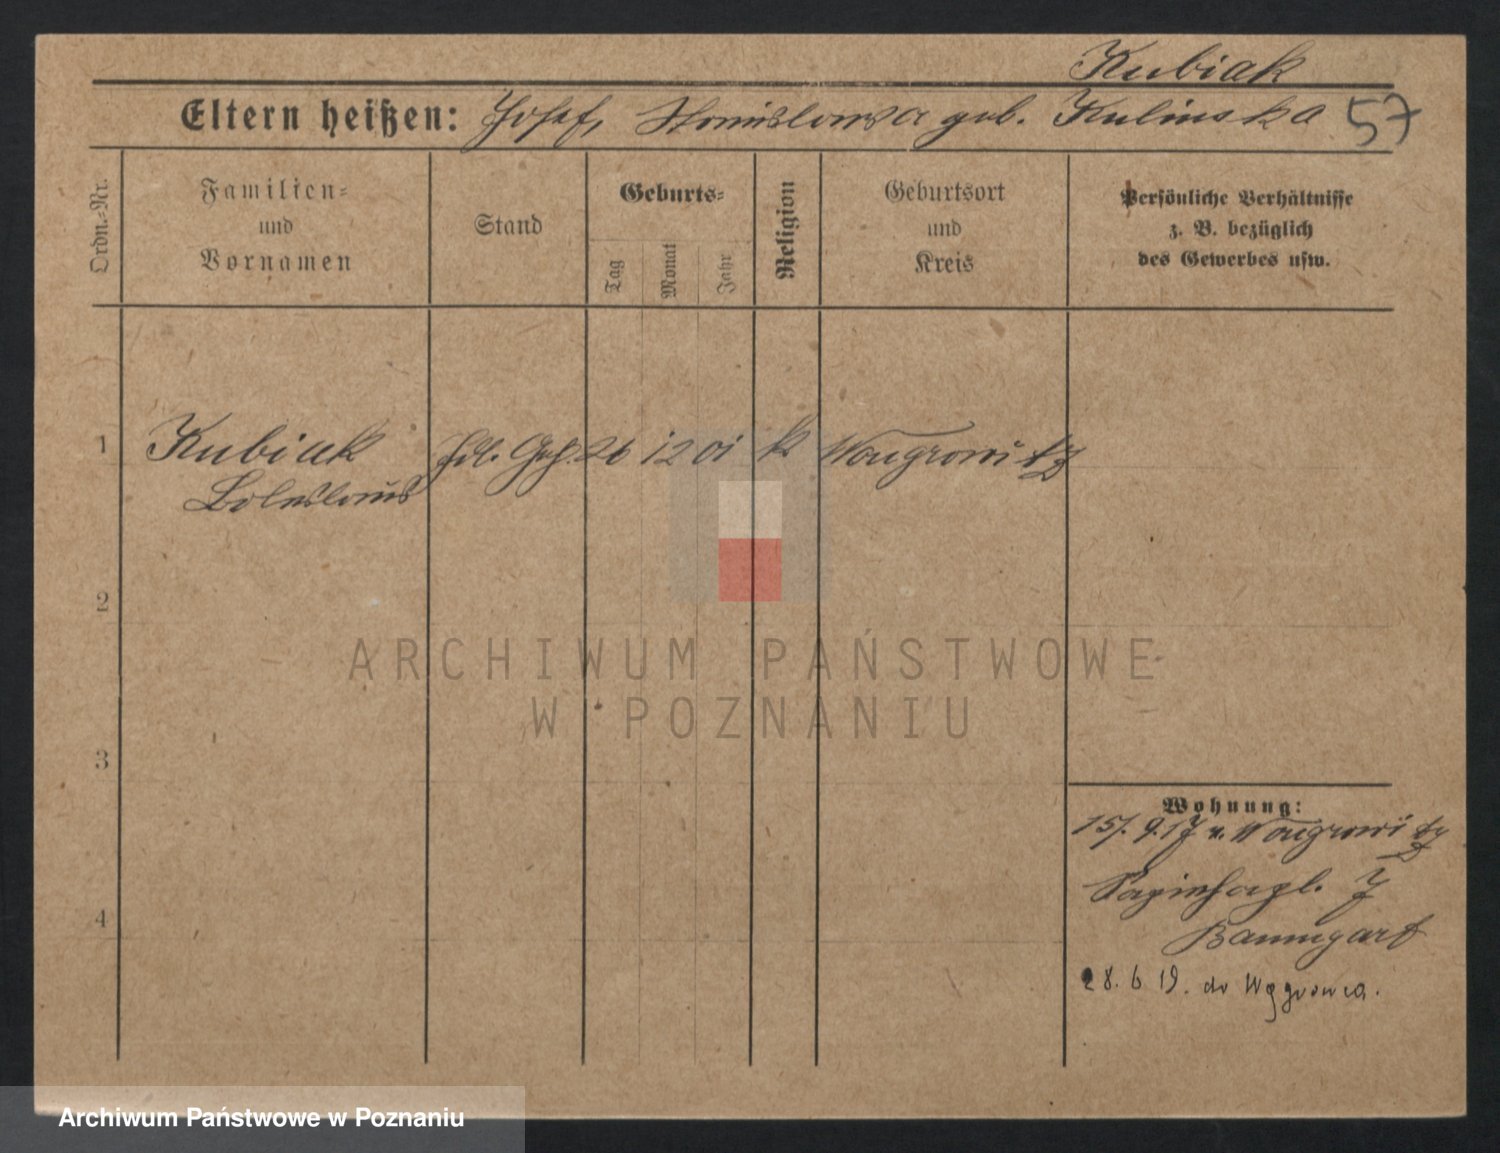 Kubiak
Eltern heißen: Josef, Stanislawa geb. Kulinska 57
Ordn.-Nr.
Familien- und Vornamen
Stand
Geburts-
Tag
Monat
Jahr
Religion
Geburtsort und Kreis
Persönliche Verhältnisse
z. B. bezüglich
des Gewerbes usw.
1 Kubiak Hdl. Geh. 26 12 01 k Wongrowitz
Boleslaus
2
ARCHIWUM PAŃSTWOWE
W POZNANIU
3
Wohnung:
15/. 9.17 v. Wongrowitz
Sapiehapl. 7
4
Baumgart
28. 6 19. do Wągrowca.
Archiwum Państwowe w Poznaniu